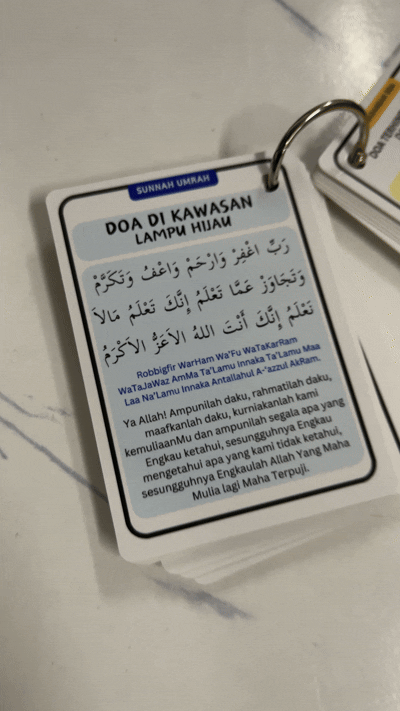 SUNNAH UMRAH
DOA DI KAWASAN
LAMPU HIJAU
رَبِّ اغْفِرْ وَارْحَمْ وَاعْفُ وَتَكَرَّمْ
وَتَجَاوَزْ عَمَّا تَعْلَمُ إِنَّكَ تَعْلَمُ مَالاَ
نَعْلَمُ إِنَّكَ أَنْتَ اللهُ الاَعَزُّ الاَكْرَمُ
Robbigfir WarHam Wa'Fu WaTaKarRam
WaTaJaWaz AmMa Ta'Lamu Innaka Ta'Lamu Maa
Laa Na'Lamu Innaka Antallahul A-'azzul AkRam.
Ya Allah! Ampunilah daku, rahmatilah daku,
maafkanlah daku, kurniakanlah kami
kemuliaanMu dan ampunilah segala apa yang
Engkau ketahui, sesungguhnya Engkau
mengetahui apa yang kami tidak ketahui,
sesungguhnya Engkaulah Allah Yang Maha
Mulia lagi Maha Terpuji.
DOA